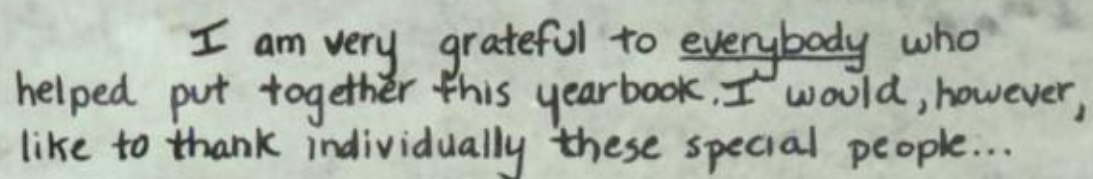 I am very grateful to everybody who
helped put together this yearbook. I would, however,
like to thank individually these special people...